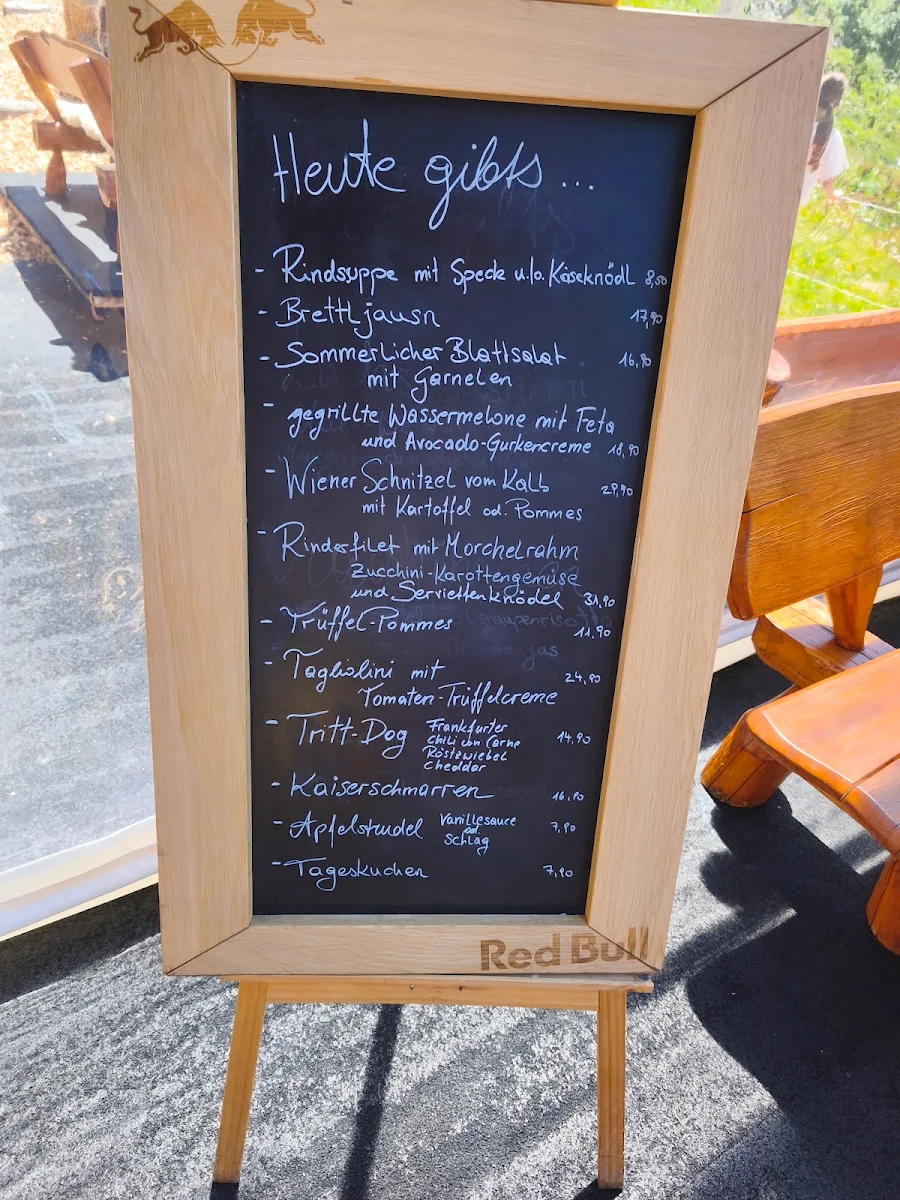 Heute gibts ...
- Rindsuppe mit Speck u.lo. Käseknödl 8,50
- Brettljausn 17,90
- Sommerlicher Blattsalat 16,90
mit Garnelen
- gegrillte Wassermelone mit Feta
und Avocado-Gurkencreme 18,90
- Wiener Schnitzel vom Kalb 29,90
mit Kartoffel od. Pommes
- Rinderfilet mit Morchelrahm
Zucchini-Karottengemüse
und Serviettenknödel 31,90
- Trüffel-Pommes 11,90
- Tagliolini mit 24,90
Tomaten-Trüffelcreme
- Tritt-Dog Frankfurter
Chili con Carne 14,90
Röstzwiebel
Cheddar
- Kaiserschmarren 16,90
- Apfelstrudel Vanillesauce 7,90
od.
Schlag
- Tageskuchen 7,90
Red Bull